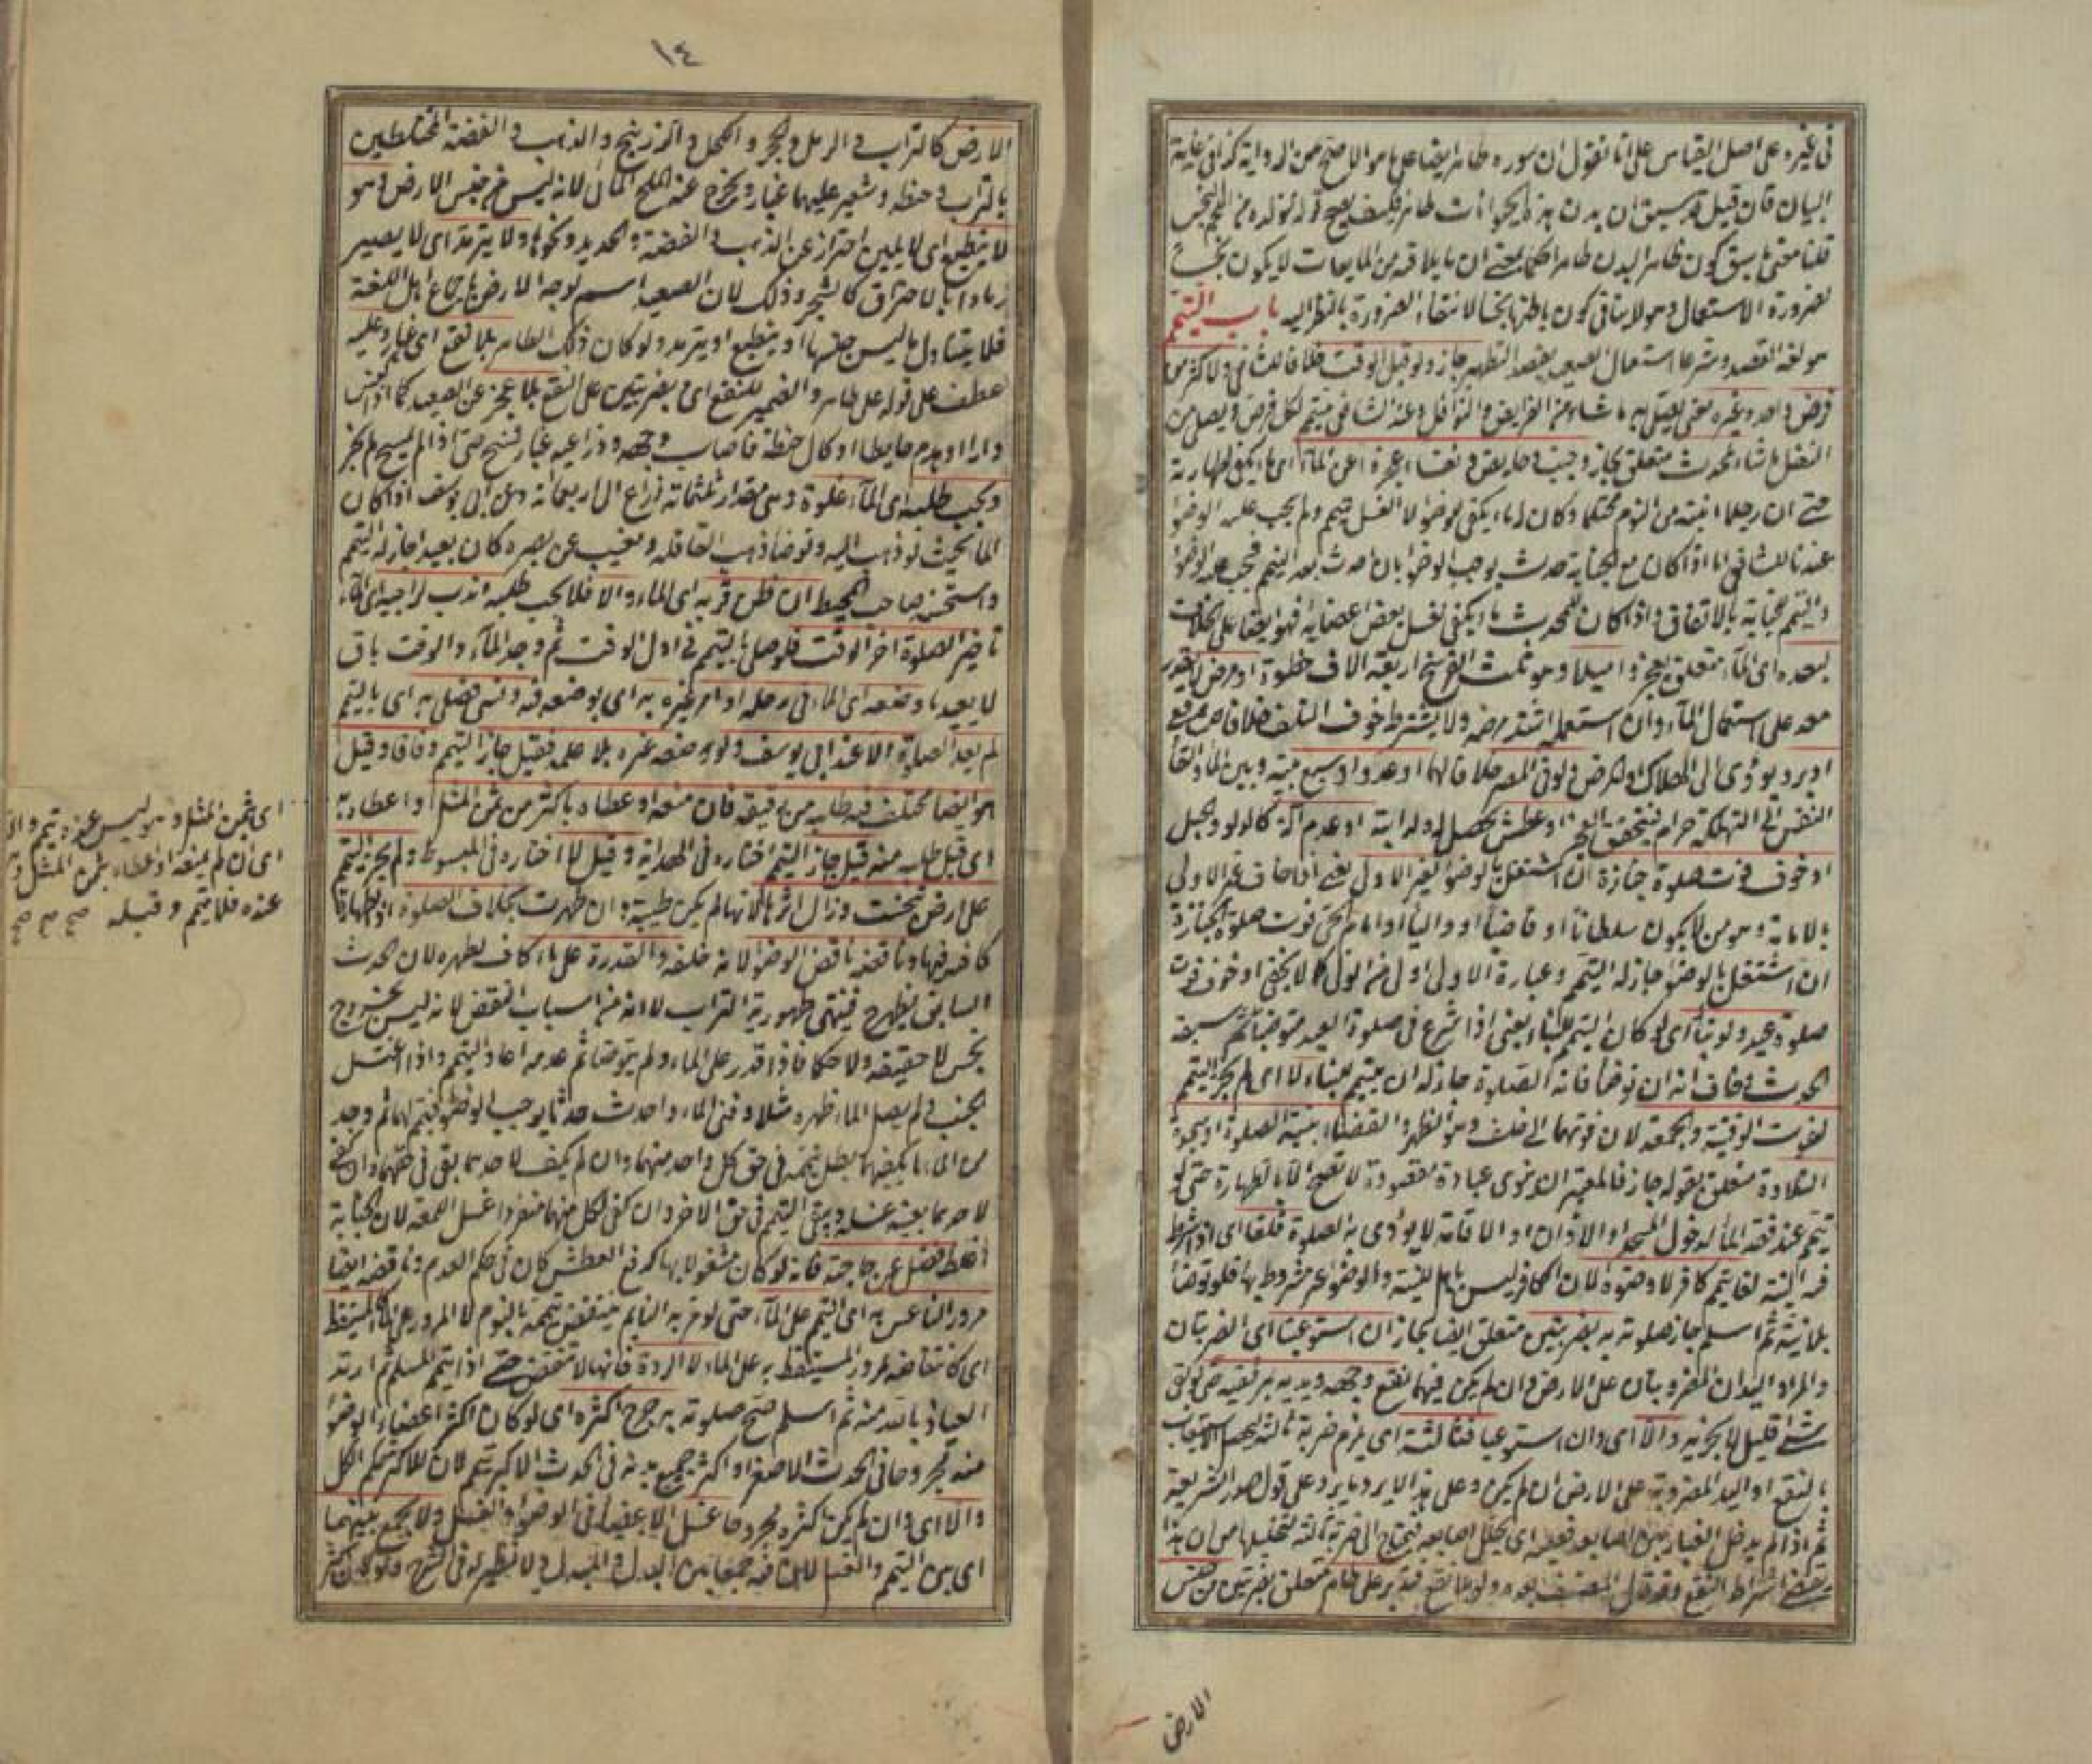 في غيره على اصل القياس على انا نقول ان سوره طاهر ايضا على ما هو الاصح من الرواية كذا في غاية
البيان فان قيل قد سبق ان بدن هذه الحيوانات طاهر فكيف يصح قوله لتولده من اللحم النجس
قلنا معنى ما سبق كون ظاهر البدن طاهرا حكما بمعنى ان ما يلاقيه من المايعات لا يكون نجسا
لضرورة الاستعمال وهو لا ينافي كون باطنها نجسا لانتفاء الضرورة بالنظر اليه باب التيمم
هو لغة القصد وشرعا استعمال الصعيد بقصد التطهير جاز ولو قبل الوقت خلافا للشافعي ولاكثر من
فرض واحد وغيره يعني يصلي به ما شاء من الفرايض والنوافل وعند الشافعي يتيمم لكل فرض ويصلي من
النفل ما شاء لمحدث متعلق بجاز وجنب وحايض ونفساء عجزوا عن الماء اي ماء يكفي لطهارته
حتى ان رجلا انتبه من النوم محتلما وكان له ماء يكفي لوضوء لا الغسل يتيمم ولم يجب عليه الوضوء
عندنا للشافعي اما اذا كان مع الجنابة حدث يوجب الوضوء بان احدث بعد التيمم فيجب عليه الوضوء
والتيمم للجنابة بالاتفاق واذا كان للمحدث ماء يكفي لغسل بعض اعضايه فهو ايضا على الخلاف
لبعده اي الماء متعلق بعجزوا ميلا وهو ثلث الفرسخ اربعة الاف خطوة او مرض لا يقدر
معه على استعمال الماء وان استعمله اشتد مرضه ولا يشترط خوف التلف خلافا للشافعي
او برد يؤدي الى الهلاك او المرض ولو في المصر خلافا لهما او عدو او سبع بينه وبين الماء والقاء
النفس الى التهلكة حرام فيتحقق العجز او عطش يحصل له او لدابته او عدم الة كالدلو والحبل
او خوف فوت صلوة جنازة ان اشتغل بالوضوء لغير الاولى يعني اذا خاف غير الاولى
بالامامة وهو من لا يكون سلطانا او قاضيا او واليا او امام الحي فوت صلوة الجنازة
ان اشتغل بالوضوء جاز له التيمم وعبارة الاولى اولى من الولي كما لا يخفى او خوف فوت
صلوة عيد ولو بناء اي لو كان التيمم للبناء يعني اذا شرع في صلوة العيد متوضئا ثم سبقه
الحدث وخاف انه ان توضأ فاته الصلوة جاز له ان يتيمم للبناء لا اي لم يجز التيمم
لفوت الوقتية والجمعة لان فوتهما الى خلف وهو الظهر والقضاء بنية الصلوة او سجدة
التلاوة متعلق بقوله جاز فالمعتبر ان ينوي عبادة مقصودة لا تصح الا بالطهارة حتى لو
تيمم عند فقد الماء لدخول المسجد او الاذان او الاقامة لا يؤدي به الصلوة فلغا اي اذا شرط
فيه النية لغا تيمم كافر لا وضوءه لان الكافر ليس باهل للنية والوضوء غير مشروط بها فلو توضأ
بلا نية ثم اسلم جاز صلوته به بضربتين متعلق ايضا بجاز ان استوعبتا اي الضربتان
والمراد اليدان المضروبتان على الارض وان لم يكن فيهما نقع وجهه ويديه بمرفقيه حتى لو بقي
شئ قليل لا يجزيه والا اي وان استوعبا فثالثة اي يلزم ضربة ثالثة ليحصل الاستيعاب
بالنقع او اليد المضروبة على الارض ان لم يكن وعلى هذا لا يرد ما يرد على قول صدر الشريعة
ثم اذا لم يدخل الغبار بين اصابعه فعليه اي يخلل اصابعه فيحتاج الى ضربة ثالثة لتخليلها من ان هذا
يقتضي اشتراط النقع وقد قال المصنف بعده ولو بلا نقع فتدبر على طاهر متعلق بضربتين من جنس
الارض
١٤
الارض كالتراب والرمل والحجر والكحل والزرنيخ والذهب والفضة المختلطين
بالتراب وحنطة وشعير عليهما غبار وخرج عنه الملح المائي لانه ليس من جنس الارض وهو
لا ينطبع اي لا يلين احتراز عن الذهب والفضة والحديد ونحوها ولا يترمد اي لا يصير
رمادا بالاحتراق كالشجر وذلك لان الصعيد اسم لوجه الارض باجماع اهل اللغة
فلا يتناول ما ليس جنسها او ينطبع او يترمد ولو كان ذلك الطاهر بلا نقع اي غبار وعليه
عطف على قوله على طاهر والضمير للنقع اي بضربتين على النقع بلا عجز عن الصعيد كما اذا كنس
دارا او هدم حايطا او كال حنطة فاصاب وجهه وذراعيه غبار فمسح حتى اذا لم يمسح لم يجز
ويجب طلبه اي الماء غلوة وهي مقدار ثلثمائة ذراع الى اربعمائة وعن ابي يوسف اذا كان
الماء بحيث لو ذهب اليه وتوضأ ذهب القافلة وتغيب عن بصره كان بعيدا جاز له التيمم
واستحسنه صاحب المحيط ان ظن قربه اي الماء والا فلا يجب طلبه وندب لراجيه اي الماء
تاخير الصلوة اخر الوقت فلو صلى بالتيمم في اول الوقت ثم وجد الماء والوقت باق
لا يعيد ما وضعه اي الماء في رحله او امر غيره به اي بوضعه فيه ونسي فصلى به اي بالتيمم
لم يعد الصلوة الا عند ابي يوسف ولو وضعه غيره بلا علمه فقيل جاز التيمم وفاقا وقيل
هو ايضا مختلف فيه طلبه من رفيقه فان منعه او عطاه باكثر من ثمن المثل او اعطاه به
اي قبل طلبه منه قيل جاز التيمم اختاره في الهداية وقيل لا اختاره في المبسوط ولم يجز التيمم
على ارض نجست وزال اثرها لانها لم يكن طيبة وان طهرت بخلاف الصلوة اذ الطهارة
كافية فيها وناقضه ناقض الوضوء لانه خلفه والقدرة على ماء كاف لطهره لان الحدث
السابق يظهر ح فينتهي طهورية التراب لا انه من اسباب النقض لانه ليس بخروج
نجس لا حقيقة ولا حكما فاذا قدر على الماء ولم يتوضأ ثم عدمه اعاد التيمم واذا اغتسل
الجنب ولم يصل الماء ظهره مثلا وفني الماء واحدث حدثا يوجب الوضوء فتيمم لهما ثم وجد
من الماء ما يكفيهما بطل تيممه في حق كل واحد منهما وان لم يكف لاحدهما بقي في حقهما وان كفى
لاحدهما بعينه غسله ويبقى التيمم في حق الاخر وان كفى لكل منهما منفردا غسل اللمعة لان الجنابة
اغلظ فضل عن حاجته فانه لو كان مشغولا بها كدفع العطش كان في حكم العدم وناقضه ايضا
مرور الناعس به اي التيمم على الماء حتى لو مر به النايم ينتقض تيممه بالنوم لا المرور على الماء كالمستيقظ
اي كانتقاضه لمرور المستيقظ به على الماء لا الردة فانها لا تنقض حتى اذا تيمم المسلم ثم ارتد
العياذ بالله منه ثم اسلم صح صلوته به جرح اكثره اي لو كان اكثر اعضاء الوضوء
منه مجروحا في الحدث الاصغر او اكثر جميع بدنه في الحدث الاكبر تيمم لان للاكثر حكم الكل
والا اي وان لم يكن اكثره مجروحا غسل الاعضاء في الوضوء والغسل ولا يجمع بينهما
اي بين التيمم والغسل لان فيه جمعا بين البدل والمبدل ولا نظير له في الشرع ولو كان اكثر
اي ثمن المثل وهو ليس عنده تيمم والا
اي ان لم يمنعه او اعطاه بثمن المثل و
عنده فلا تيمم وقبله صح صح صح